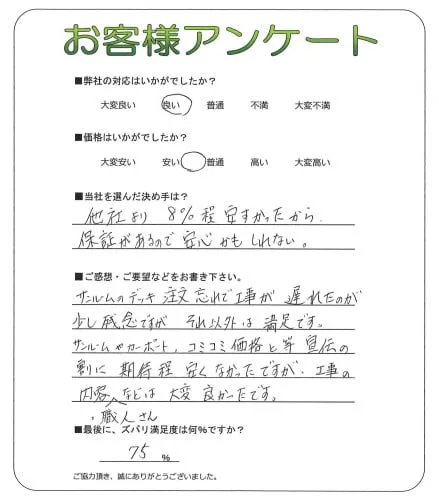 お客様アンケート
■弊社の対応はいかがでしたか？
大変良い 良い 普通 不満 大変不満
■価格はいかがでしたか？
大変安い 安い 普通 高い 大変高い
■当社を選んだ決め手は？
他社より 8%程 安すかったから
保証があるので 安心かもしれない。
■ご感想・ご要望などをお書き下さい。
サンルームのデッキ注文忘れで工事が 遅れたのが
少し残念ですが それ以外は 満足です。
サンルームやカーポート、コミコミ価格と 宣伝の
割に 期待程 安くなかったですが、工事の
内容 などは 大変 良かったです。
・職人さん
■最後に、ズバリ満足度は何％ですか？
75 %
ご協力頂き、誠にありがとうございました。